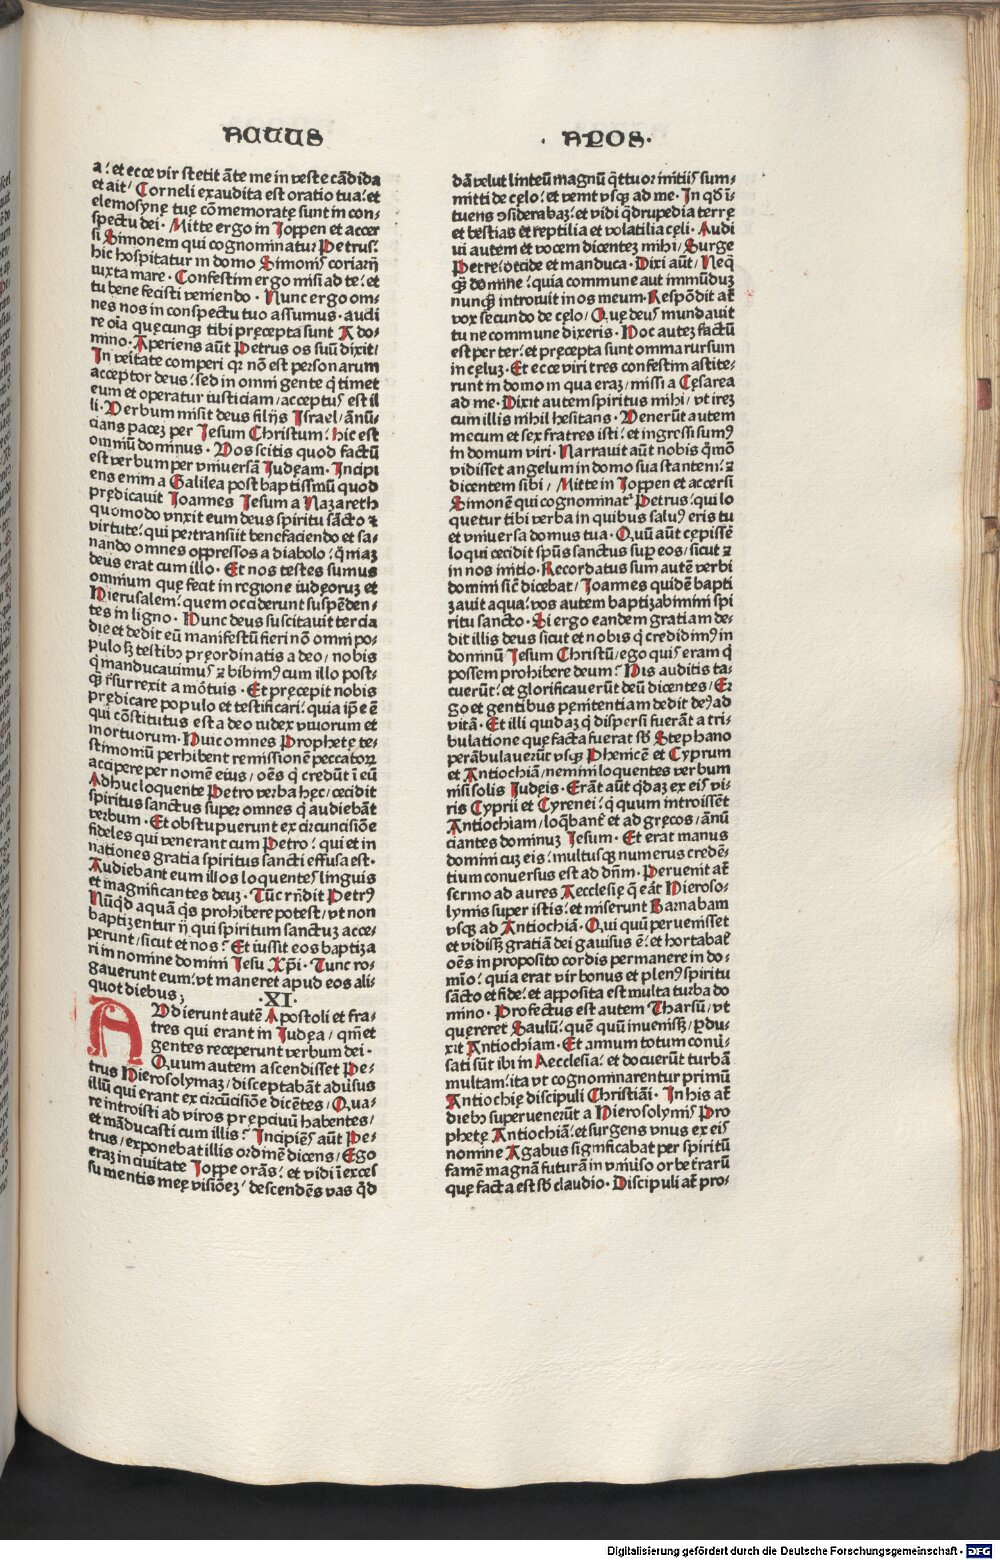 ACTUS
· APOS·
a: et ecce vir stetit āte me in veste cādida
et ait/ Corneli exaudita est oratio tua: et
elemosynę tuę cōmemoratę sunt in con-
spectu dei · Mitte ergo in Joppen et accer
si Simonem qui cognominatur Petrus:
hic hospitatur in domo Simonis coriarij
iuxta mare · Confestim ergo misi ad te: et
tu bene fecisti veniendo · Nunc ergo om-
nes nos in conspectu tuo assumus · audi
re oīa quęcunqꝫ tibi pręcepta sunt A do-
mino · Aperiens aūt Petrus os suū dixit/
In veītate comperi qꝫ nō est personarum
acceptor deus: sed in omni gente q̇ timet
eum et operatur iusticiam/acceptus est il
li · Verbum misit deus filijs Israel/ānū-
cians pacez per Jesum Christum: hic est
omniū dominus · Vos scitis quod factū
est verbum per vniversā Judęam · Incipi
ens enim a Galilea post baptismū quod
prędicavit Joannes Jesum a Nazareth
quomodo vnxit eum deus spiritu sācto ꝛ
virtute: qui pertransiit benefaciendo et sa-
nando omnes oppressos a diabolo: qm̄az
deus erat cum illo · Et nos testes sumus
omnium quę fecit in regione iudęoruz et
Hierusalem: quem occiderunt suspēden-
tes in ligno · Hunc deus suscitavit tercia
die et dedit eū manifestū fieri nō omni po-
pulo sꝫ testibꝰ pręordinatis a deo/nobis
q̇ manducavimus ꝛ bibimꝰ cum illo post-
q̄ꝫ r̄surrexit a mōtuis · Et pręcepit nobis
prędicare populo et testificari: quia ip̄e ē
qui cōstitutus est a deo iudex vivorum et
mortuorum · Huic omnes Prophetę te-
stimoniū perhibent remissionē peccatoꝝ
accipere per nomē eius/oēs q̇ credūt ī eū
Adhuc loquente Petro verba hęc/cecidit
spiritus sanctus super omnes q̇ audiebāt
verbum · Et obstupuerunt ex circuncisiōe
fideles qui venerant cum Petro: qui et in
nationes gratia spiritus sancti effusa est ·
Audiebant eum illos loquentes linguis
et magnificantes deuz · Tūc rn̄dit Petrꝰ
Nūq̇d aquā q̇s prohibere potest/vt non
baptizentur ij qui spiritum sanctuz acce-
perunt/sicut et nos: Et iussit eos baptiza
ri in nomine domini Jesu Xp̄i · Tunc ro-
gaverunt eum: vt maneret apud eos ali-
quot diebus; ·XI·
AVdierunt autē Apostoli et fra-
tres qui erant in Judęa/qm̄ et
gentes receperunt verbum dei ·
Quum autem ascendisset Pe-
trus Hierosolymaz/disceptabāt adūsus
illū qui erant ex circūcisiōe dicētes/Qua-
re introisti ad viros prępciuū habentes/
et māducasti cum illis: Incipiēs aūt Pe-
trus/exponebat illis ordinē dicens/Ego
eraz in civitate Joppe orās: et vidi ī exces
su mentis meę visiōez/descendēs vas q̇d
dā velut linteū magnū q̄ttuor initijs sum-
mitti de cęlo: et venit vsqꝫ ad me · In qd̄ ī-
tuens ɔsiderabaz: et vidi q̄drupedia terrę
et bestias et reptilia et volatilia cęli · Audi
vi autem et vocem dicentez mihi/Surge
Petre: occide et manduca · Dixi aūt/Neq̄
q̄ꝫ domine: quia commune aut immūduz
nunq̄ꝫ introivit in os meum · Respōdit at̄
vox secundo de cęlo/Quę deus mundavit
tu ne commune dixeris · Hoc autez factū
est per ter: et pręcepta sunt omnia rursum
in cęluz · Et ecce viri tres confestim astite-
runt in domo in qua eraz/missi a Cęsarea
ad me · Dixit autem spiritus mihi/vt irez
cum illis nihil hesitans · Venerūt autem
mecum et sex fratres isti: et ingressi sumꝰ
in domum viri · Narravit aūt nobis q̄mō
vidisset angelum in domo sua stantem: ꝛ
dicentem sibi/Mitte in Joppen et accersi
Simonē qui cognominat᷑ Petrus: qui lo
quetur tibi verba in quibus salvꝰ eris tu
et vniversa domus tua · Quū aūt cępissē
loqui cecidit spūs sanctus sup eos/sicut ꝛ
in nos initio · Recordatus sum autē verbi
domini sic̄ dicebat/Joannes quidē bapti
zavit aqua: vos autem baptizabimini spi
ritu sancto · Si ergo eandem gratiam de-
dit illis deus sicut et nobis q̇ credidimꝰ in
dominū Jesum Christū/ego quis eram q̇
possem prohibere deum: His auditis ta-
cuerūt: et glorificaverūt deū dicentes/Er
go et gentibus pęnitentiam dedit deꝰ ad
vitā · Et illi quidaz q̇ dispersi fuerāt a tri-
bulatione quę facta fuerat sb̄ Stephano
perābulaverūt vsqꝫ Phenicē et Cyprum
et Antiochiā/nemini loquentes verbum
nisi solis Judęis · Erāt aūt q̇daz ex eis vi-
ris Cyprii et Cyrenei: q̇ quum introissēt
Antiochiam/loq̄bant᷑ et ad gręcos/ānū
ciantes dominuz Jesum · Et erat manus
domini cuz eis: multusqꝫ numerus credē-
tium conversus est ad dn̄m · Pervenit at̄
sermo ad aures Aecclesię q̄ eāt Hieroso-
lymis super istis: et miserunt Barnabam
vsqꝫ ad Antiochiā · Qui quū pervenisset
et vidissꝫ gratiā dei gavisus ē: et hortabat᷑
oēs in proposito cordis permanere in do-
mīo: quia erat vir bonus et plenꝰ spiritu
sācto et fide: et apposita est multa turba do
mino · Profectus est autem Tharsū/vt
quęreret Saulū: quē quū invenissꝫ/pdu-
xit Antiochiam · Et annum totum conū-
sati sūt ibi in Aecclesia: et docuerūt turbā
multam: ita vt cognominarentur primū
Antiochię discipuli Christiāi · In his at̄
diebꝰ supervenerūt a Hierosolymis Pro
phetę Antiochiā: et surgens vnus ex eis
nomine Agabus significabat per spiritū
famē magnā futurā in vniūso orbe t̄rarū
quę facta est sb̄ claudio · Discipuli at̄ pro-
Digitalisierung gefördert durch die Deutsche Forschungsgemeinschaft - DFG